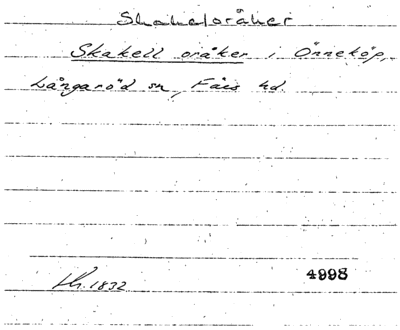 Skakeloråker
Skakell oråker i Önneköp,
Långaröd sn, Färs hd.
Lh. 1832
4998